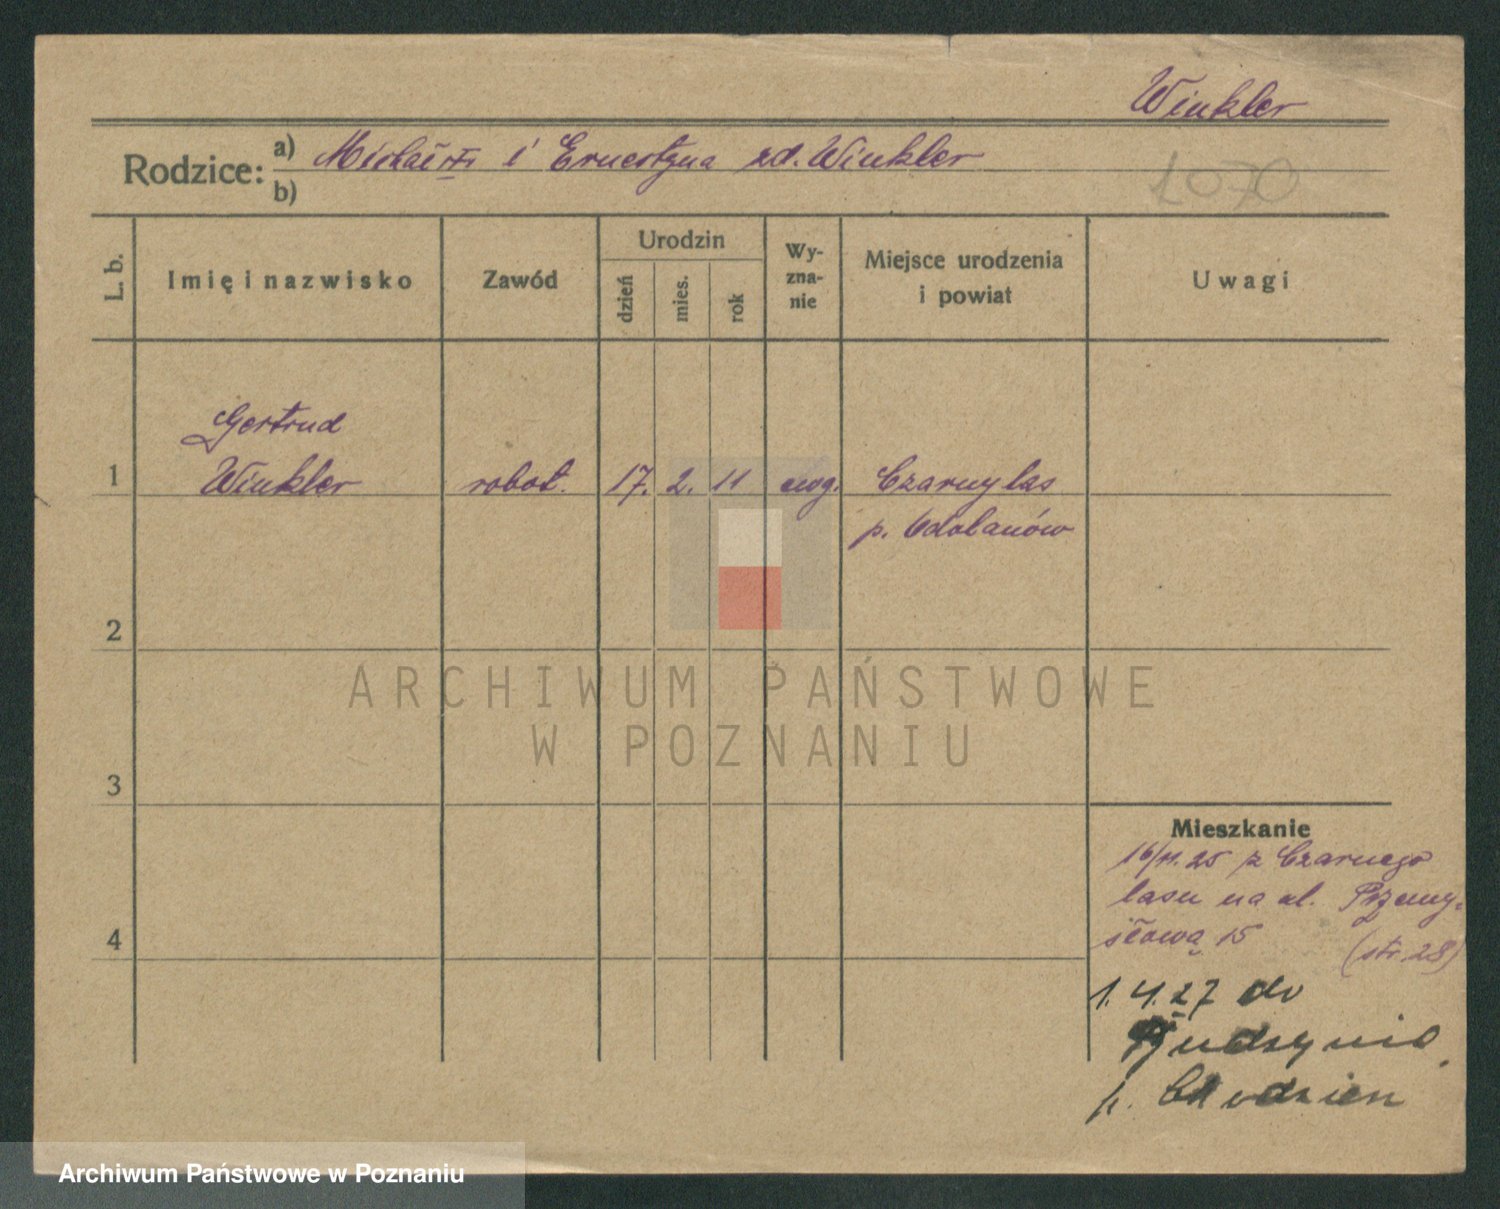 Winkler
Rodzice: a) Michał i Ernestyna zd. Winkler
b)
1070
L. b. Imię i nazwisko Zawód Urodzin dzień mies. rok Wyznanie Miejsce urodzenia i powiat Uwagi
Gertrud
1 Winkler robot. 17. 2. 11 ewg. Czarnylas
p. Odolanów
2
ARCHIWUM PAŃSTWOWE
W POZNANIU
3
Mieszkanie
16/11.25 z Czarnego
lasu na ul. Przemy-
4 słową 15 (str. 28)
1.4.27 do
Budzynia
p. Chodzież
Archiwum Państwowe w Poznaniu